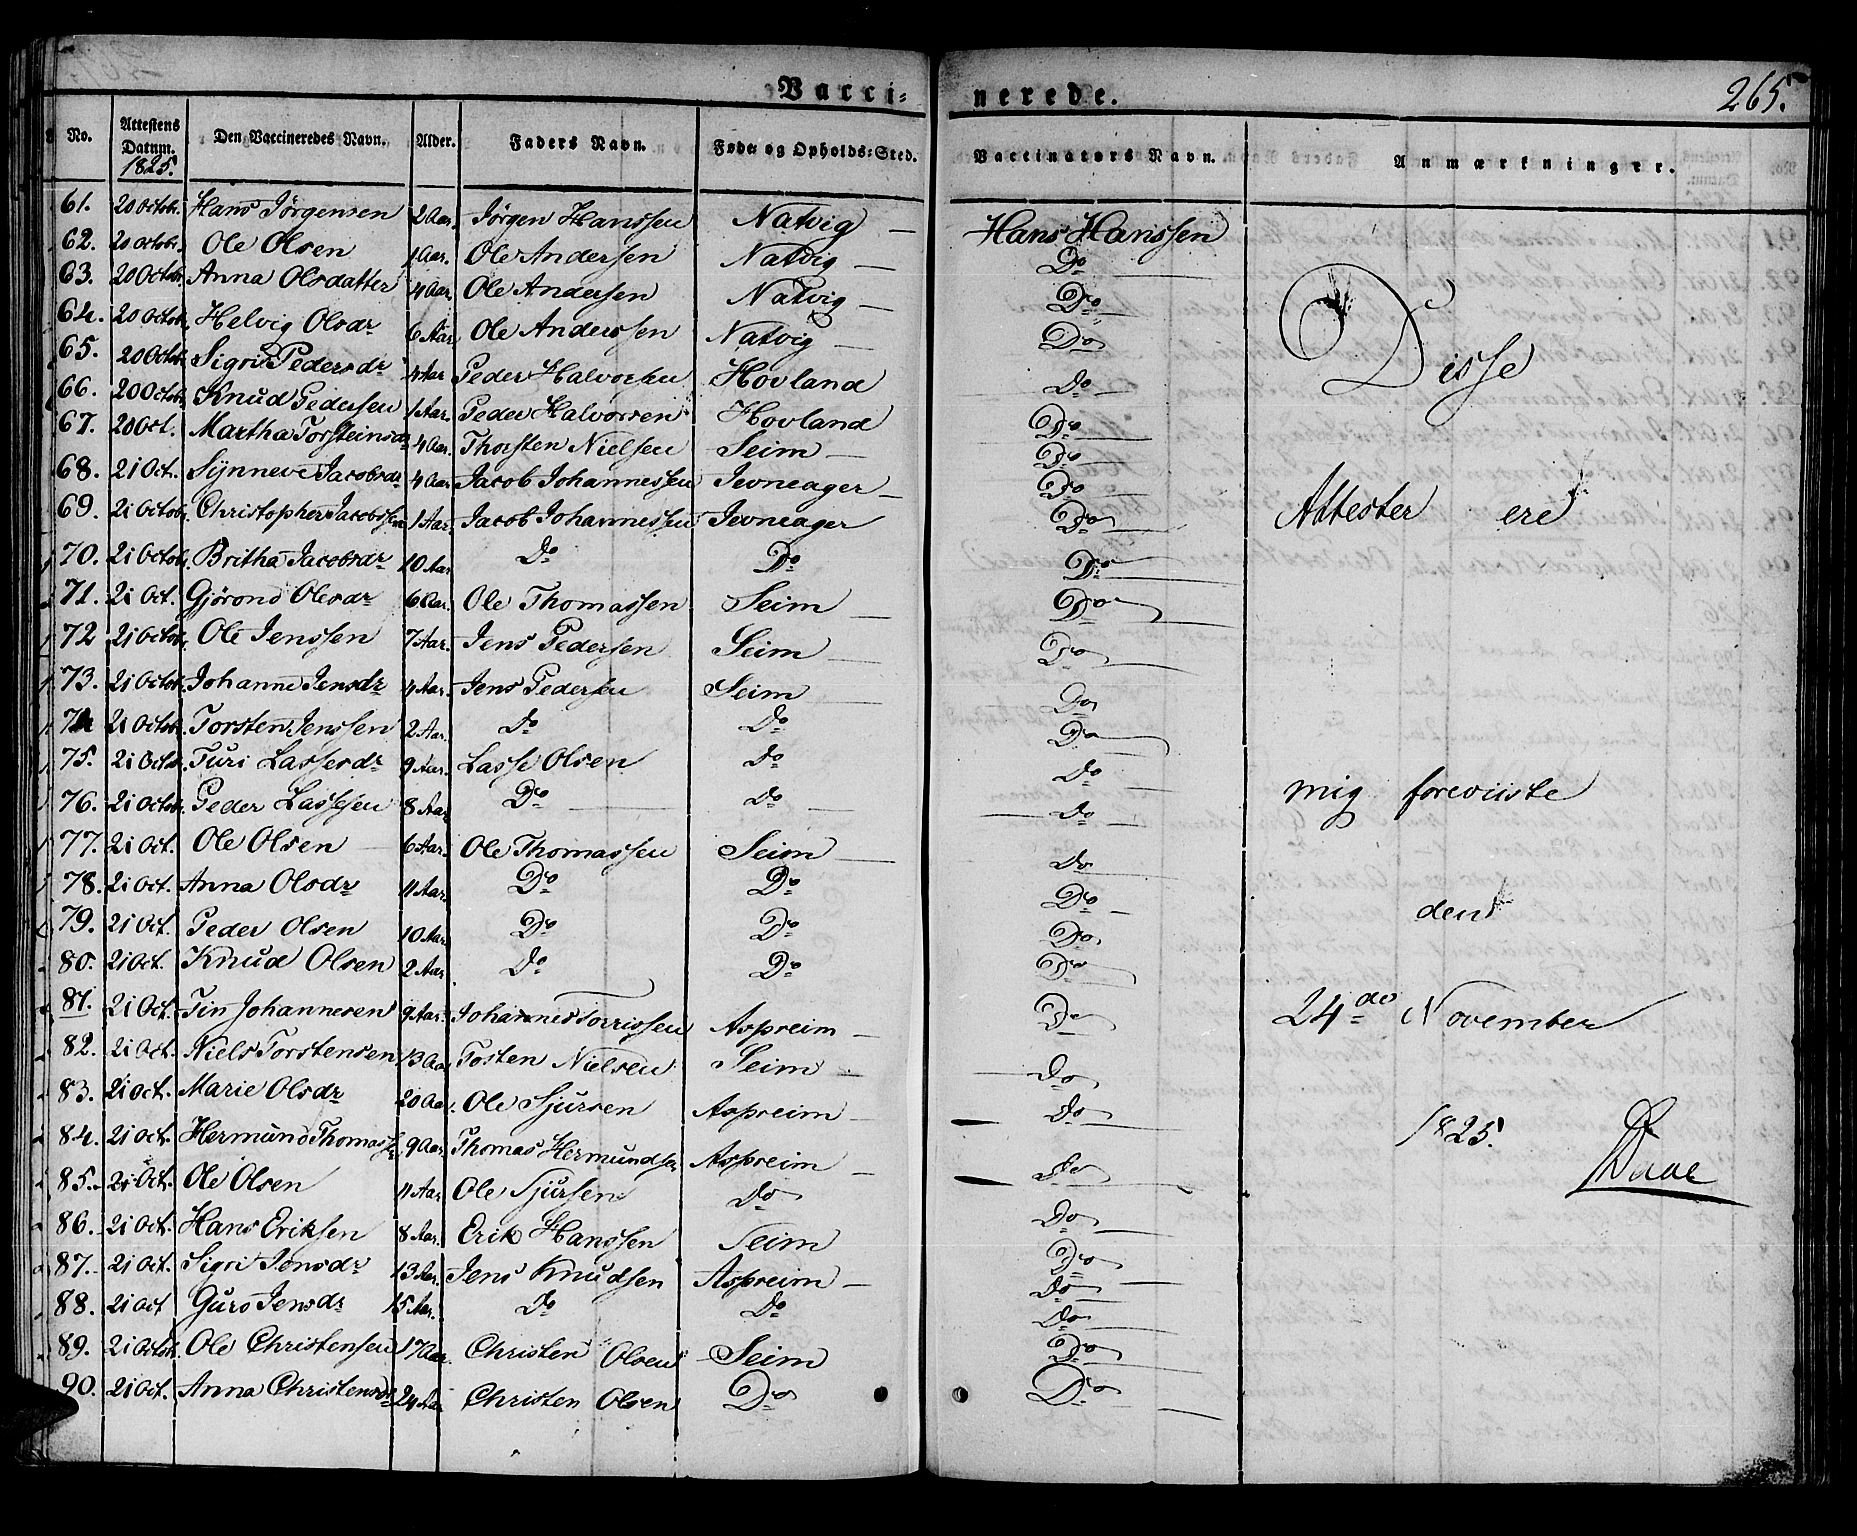 Vacci=nerede. 265.
No. Attestens Datum. 1825. Den Vaccineredes Navn. Alder. Faders Navn. Føde= og Opholds=Sted. Vaccinateurs Navn. Anmærkninger.
61. 20 Octobr. Hans Jörgensen 2 Aar. Jörgen Hanssen Natvig — Hans Hanssen
62. 20 Octobr. Ole Olsen 1 Aar. Ole Andersen Natvig — Do
63. 20 Octobr. Anna Olsdatter 4 Aar. Ole Andersen Natvig — Do
64. 20 Octobr. Helvig Olsdr 6 Aar. Ole Anderssen Natvig — Do
65. 20 Octobr. Sigri Pedersdr 4 Aar Peder Halvorsen Hovland Do
Disse
66. 20 Octobr. Knud Pedersen 1 Aar. Peder Halvorsen Hovland Do
67. 20 Oct. Martha Torsteinsdr 4 Aar. Thorsten Nielsen Seim — Do
68. 21 Oct. Synneve Jacobsdr 4 Aar Jacob Johannessen Jevneager — Do
69. 21 Octobr. Christopher Jacobsen 1 Aar. Jacob Johannessen Jevneager Do
Attester ere
70. 21 Octobr. Britha Jacobsdr 10 Aar Do Do Do
71. 21 Oct. Gjörond Olesdr 6 Aar. Ole Thomassen Seim — Do
72 21 Octobr. Ole Jenssen 7 Aar. Jens Pedersen Seim — Do
73. 21 Octobr. Johanne Jensdr 4 Aar. Jens Pedersen Seim — Do
74 21 Octobr. Torsten Jenssen 2 Aar. Do Do Do
75. 21 Octobr. Turi Lassesdr 9 Aar. Lasse Olsen Do Do
76. 21 Octobr. Peder Lassesen 8 Aar Do — Do — Do
mig foreviiste
77. 21 Oct. Ole Olsen 6 Aar. Ole Thomassen Seim — Do
78. 21 Oct. Anna Olsdr 11 Aar. Do Do Do
den
79. 21 Oct. Peder Olsen 10 Aar. Do Do Do
80. 21 Oct. Knud Olsen 2 Aar. Do Do Do
81. 21 Oct. Johannesen 9 Aar. Johannes Torrissen Aspreim — Do
24de November
82. 21 Oct. Niels Torstensen 13 Aa. Tosten Nielsen Seim — Do
83. 21 Oct. Marie Olsdr 20 Aa. Ole Sjursen Aspreim — Do
84. 21 Oct. Hermund Thomass. 9 Aar. Thomas Hermundsen Aspreim — Do
1825.
Daae
85. 21 Oct. Ole Olsen 11 Aar. Ole Sjursen Do Do
86. 21 Oct. Hans Eriksen 8 Aar. Erik Hanssen Seim Do
87. 21 Oct. Sigri Jensdr 13 Aar. Jens Knudsen Aspreim — Do
88. 21 Oct Guro Jensdr 15 Aar. Do Do Do Do
89. 21 Octobr. Ole Christensen 17 Aar. Christen Olsen Seim Do
90. 21 Oct. Anna Christensdr 24 Aa Christen Olsen Do Do